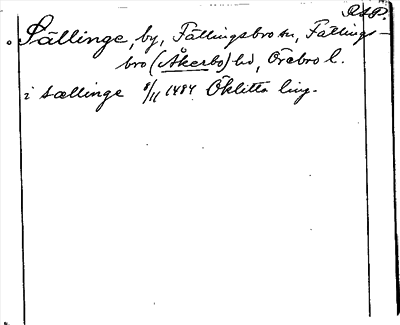 R.A.P.
Sällinge, by, Fällingsbro sn, Fällings-
bro (Åkerbo) hd, Örebro l.
i sællinge 8/11 1484 Öklitta ling.